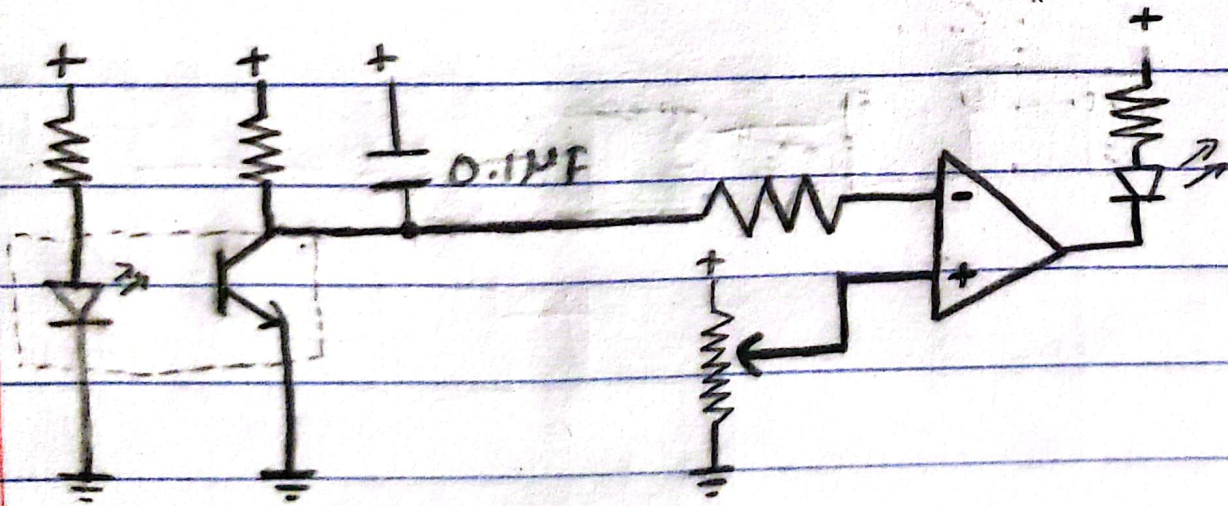 + + + +
0.1µF
-
+
+